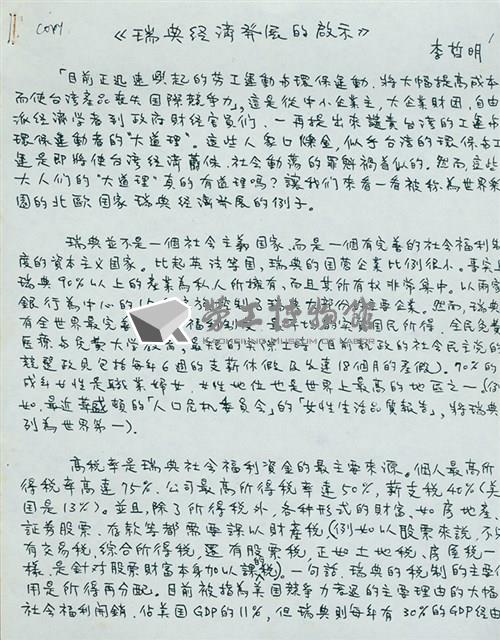 copy
《瑞典經濟發展的啟示》
李哲明
「目前正迅速興起的勞工運動與環保運動,將大幅提高成本
而使台灣產品喪失国際競爭力」,這是從中小企業主,大企業財団,自由
派經濟學者到政府財經官員们,一再提出來譴責台灣的工運與
環保運動者的"大道理"。這些人眾口鑠金,似乎台灣的環保與工
運是即將使台灣經濟蕭條、社会動蕩的罪魁禍首似的。然而這些
大人们的"大道理"真的有道理嗎?讓我们來看一看被称為世界樂
園的北歐国家瑞典經濟發展的例子。
瑞典並不是一個社会主義国家,而是一個有完善的社会福利制
度的資本主义国家。比起英法等国,瑞典的国营企業比例很小。事实上
瑞典90%以上的產業為私人所擁有,而且其所有权非常集中。以兩家
銀行為中心的 主要企業。然而,瑞典
有全世界最完善 国民所得,全民免費
医療与免費大學教育, 執政的社会民主党的
競選政見包括每年6週的支薪休假及長達18個月的產假)。90%的
成年女性是職業婦女,女性地位也是世界上最高的地區之一。(例
如,最近華盛頓的「人口危机委員会」的「女性生活品質報告」,將瑞典
列為世界第一)。
高税率是瑞典社会福利資金的最主要來源。個人最高所
得税率高達75%,公司最高所得税率達50%,薪支税40%(美
国是13%)。並且,除了所得税外,各种形式的財富,如房地產、
証券股票、存款等都需要課以財產税(例如以股票來說,不只
有交易税,綜合所得税,還有股票税,正如土地税、房屋税一
樣,是針對股票財富本身加以課的税)。一句話,瑞典的税制的主要作
用是所得再分配。目前被指為美国競争力落後的主要理由的大幅
社会福利開銷,佔美国GDP的11%,但瑞典則每年有30%的GDP經由